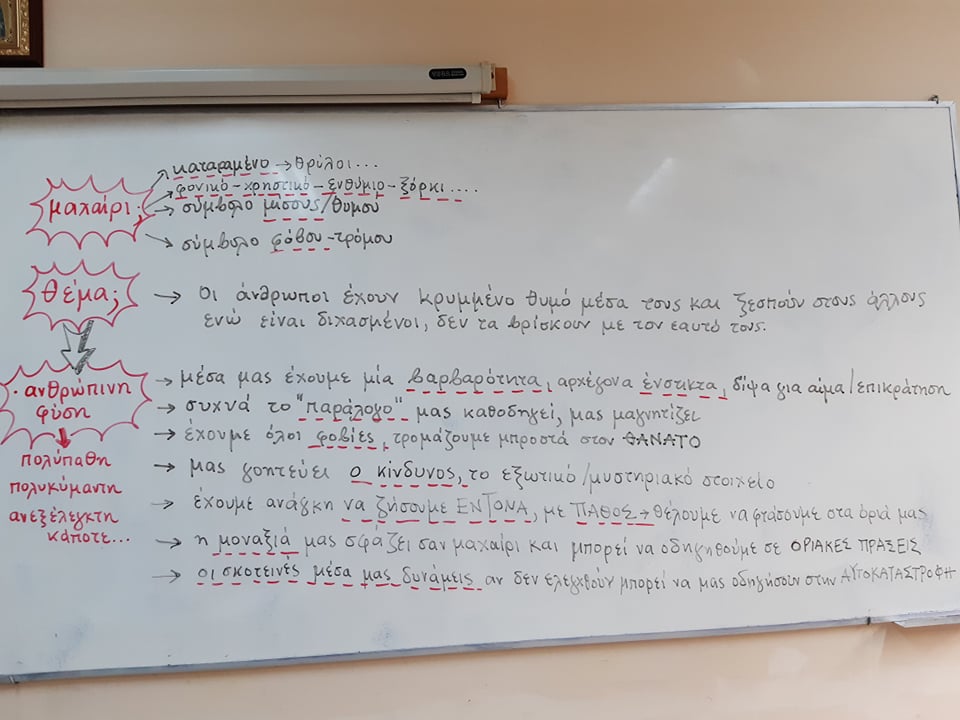 καταραμένο → θρύλοι...
φονικό - χρηστικό - ενθύμιο - ξόρκι....
μαχαίρι;
→ σύμβολο μίσους/θυμού
→ σύμβολο φόβου - τρόμου
θέμα;
→ Οι άνθρωποι έχουν κρυμμένο θυμό μέσα τους και ξεσπούν στους άλλους
ενώ είναι διχασμένοι, δεν τα βρίσκουν με τον εαυτό τους.
· ανθρώπινη
φύση
πολύπαθη
πολυκύμαντη
ανεξέλεγκτη
κάποτε...
→ μέσα μας έχουμε μία βαρβαρότητα, αρχέγονα ένστικτα, δίψα για αίμα/επικράτηση
→ συχνά το "παράλογο" μας καθοδηγεί, μας μαγνητίζει
→ έχουμε όλοι φοβίες, τρομάζουμε μπροστά στον ΘΑΝΑΤΟ
→ μας γοητεύει ο κίνδυνος, το εξωτικό/μυστηριακό στοιχείο
→ έχουμε ανάγκη να ζήσουμε ΕΝΤΟΝΑ, με ΠΑΘΟΣ → θέλουμε να φτάσουμε στα όριά μας
→ η μοναξιά μας σφάζει σαν μαχαίρι και μπορεί να οδηγηθούμε σε ΟΡΙΑΚΕΣ ΠΡΑΞΕΙΣ
→ οι σκοτεινές μέσα μας δυνάμεις αν δεν ελεγχθούν μπορεί να μας οδηγήσουν στην ΑΥΤΟΚΑΤΑΣΤΡΟΦΗ